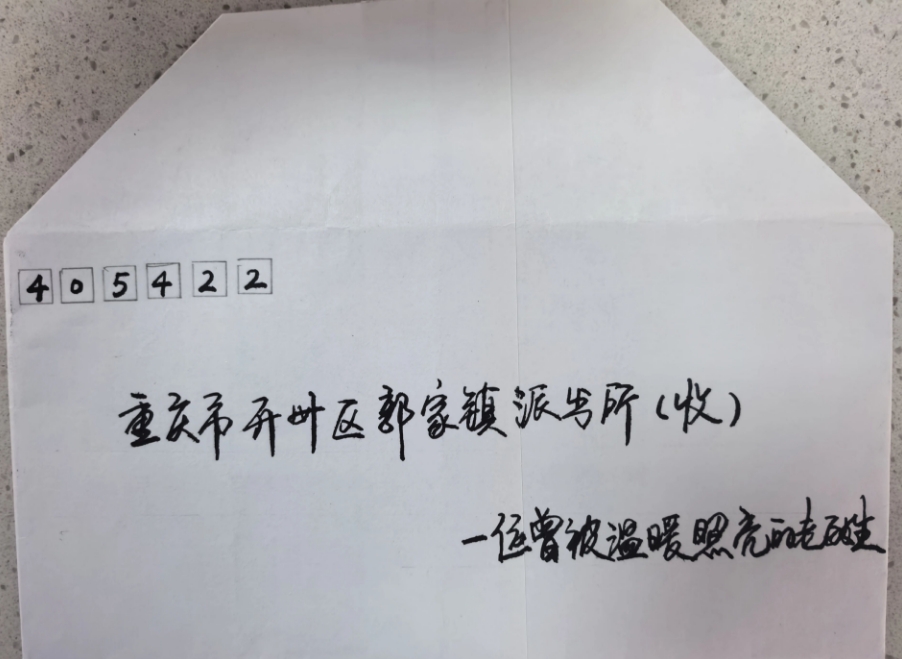 405422
重庆市开州区郭家镇派出所(收)
一位曾被温暖照亮的老百姓